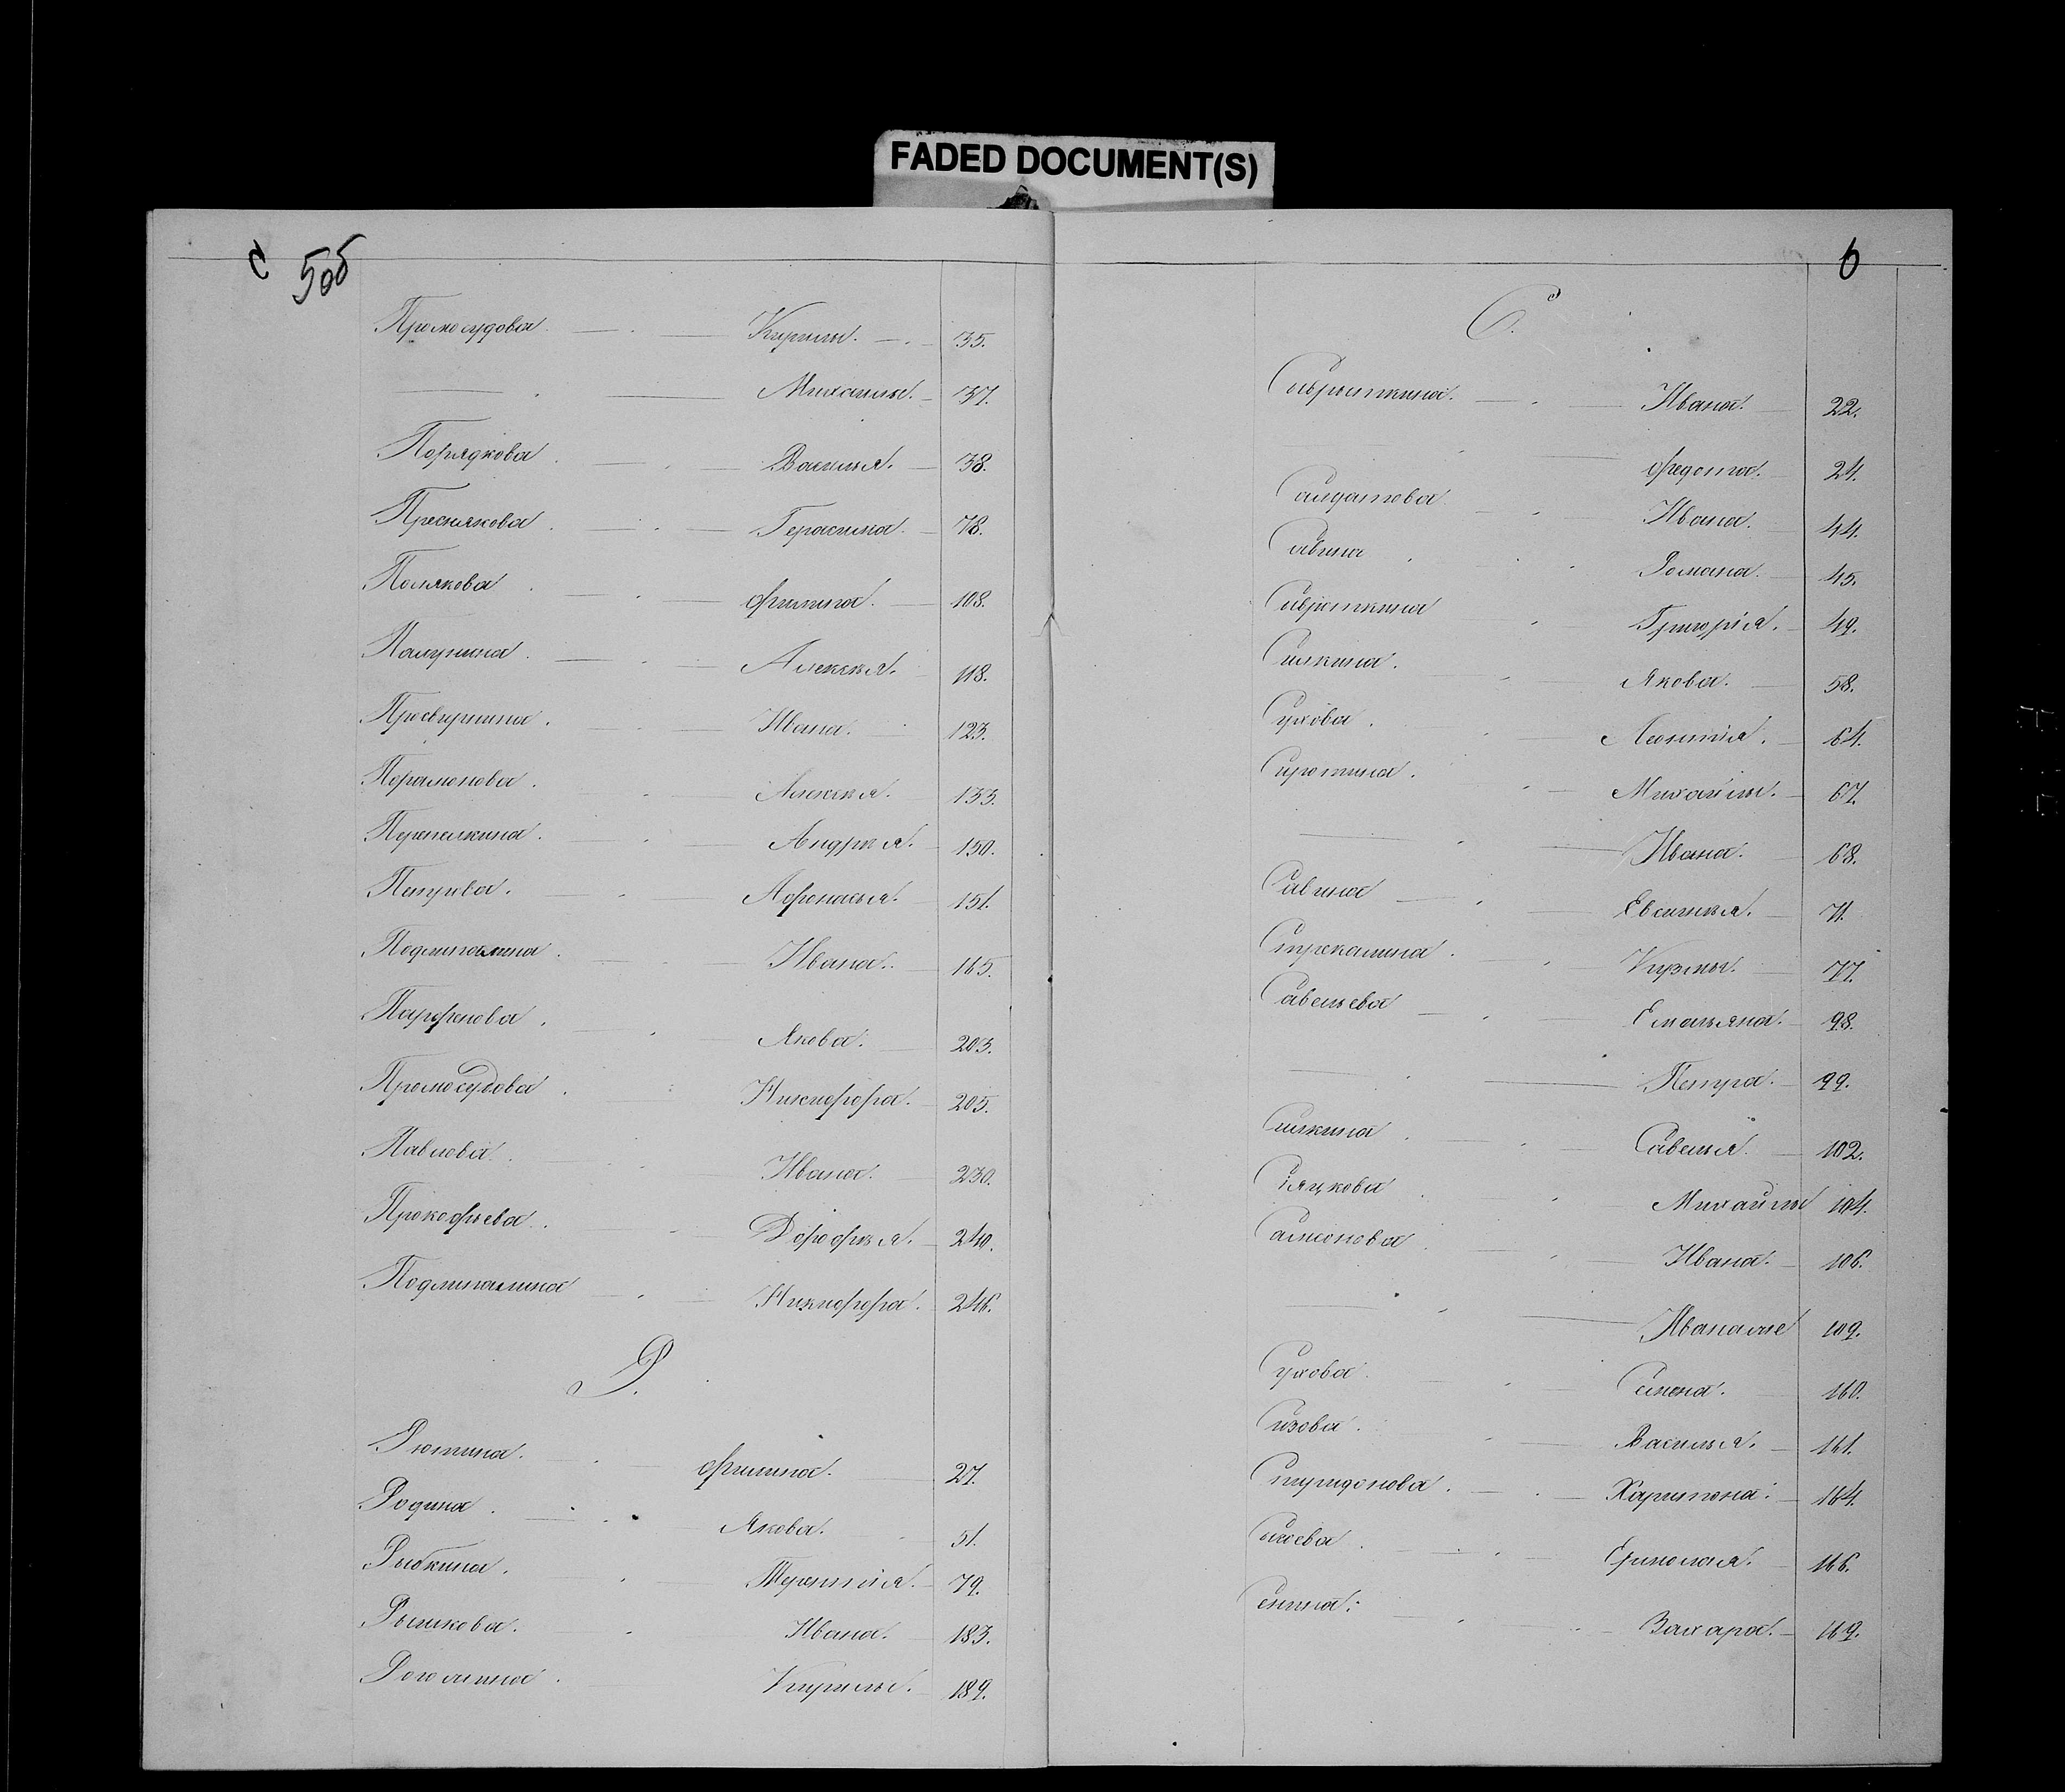 FADED DOCUMENT(S)
с 5об
Промосудова Кирилы. 35.
Михаилы. 37.
Порядкова Василья. 38.
Преснякова Герасима. 78.
Полякова Филипа. 108.
Алексѣя. 118.
Просвирнина. Ивана. 123.
Парамонова. Алексѣя. 133.
Перепелкина. Андрѣя. 150.
Петрова. Афонасья. 151.
Подлипалина. Ивана. 165.
Парфенова. Якова. 203.
Промосудова Никифора. 205.
Павлова. Ивана. 230.
Прокофьева. Дорофѣя. 240.
Подлипалина Никифора. 246.
Р.
Рютина. Филипа. 27.
Родина. Якова. 51.
Рыбкина. Терентія. 79.
Рыликова. Ивана. 183.
Кирилы. 189.
6
С.
Сывроткина. Ивана. 22.
Федота. 24.
Салдатова Ивана. 44.
Савина Романа. 45.
Сывроткина Григорія. 49.
Силкина. Якова. 58.
Сухова. Леонтія. 64.
Сиротина. Михайлы. 67.
Ивана. 68.
Савина Евсигнѣя. 71.
Стрекалина. Кузмы. 77.
Савельева Емельяна. 98.
Петра. 99.
Силкина Савелья. 102.
Михайлы 104.
Самсонова Ивана. 106.
Иванаже 109.
Сухова. Семена. 160.
Сизова. Василья. 161.
Спиридонова. Харитона. 164.
Сысоева. Ермолая. 166.
Сенина. Захара. 169.